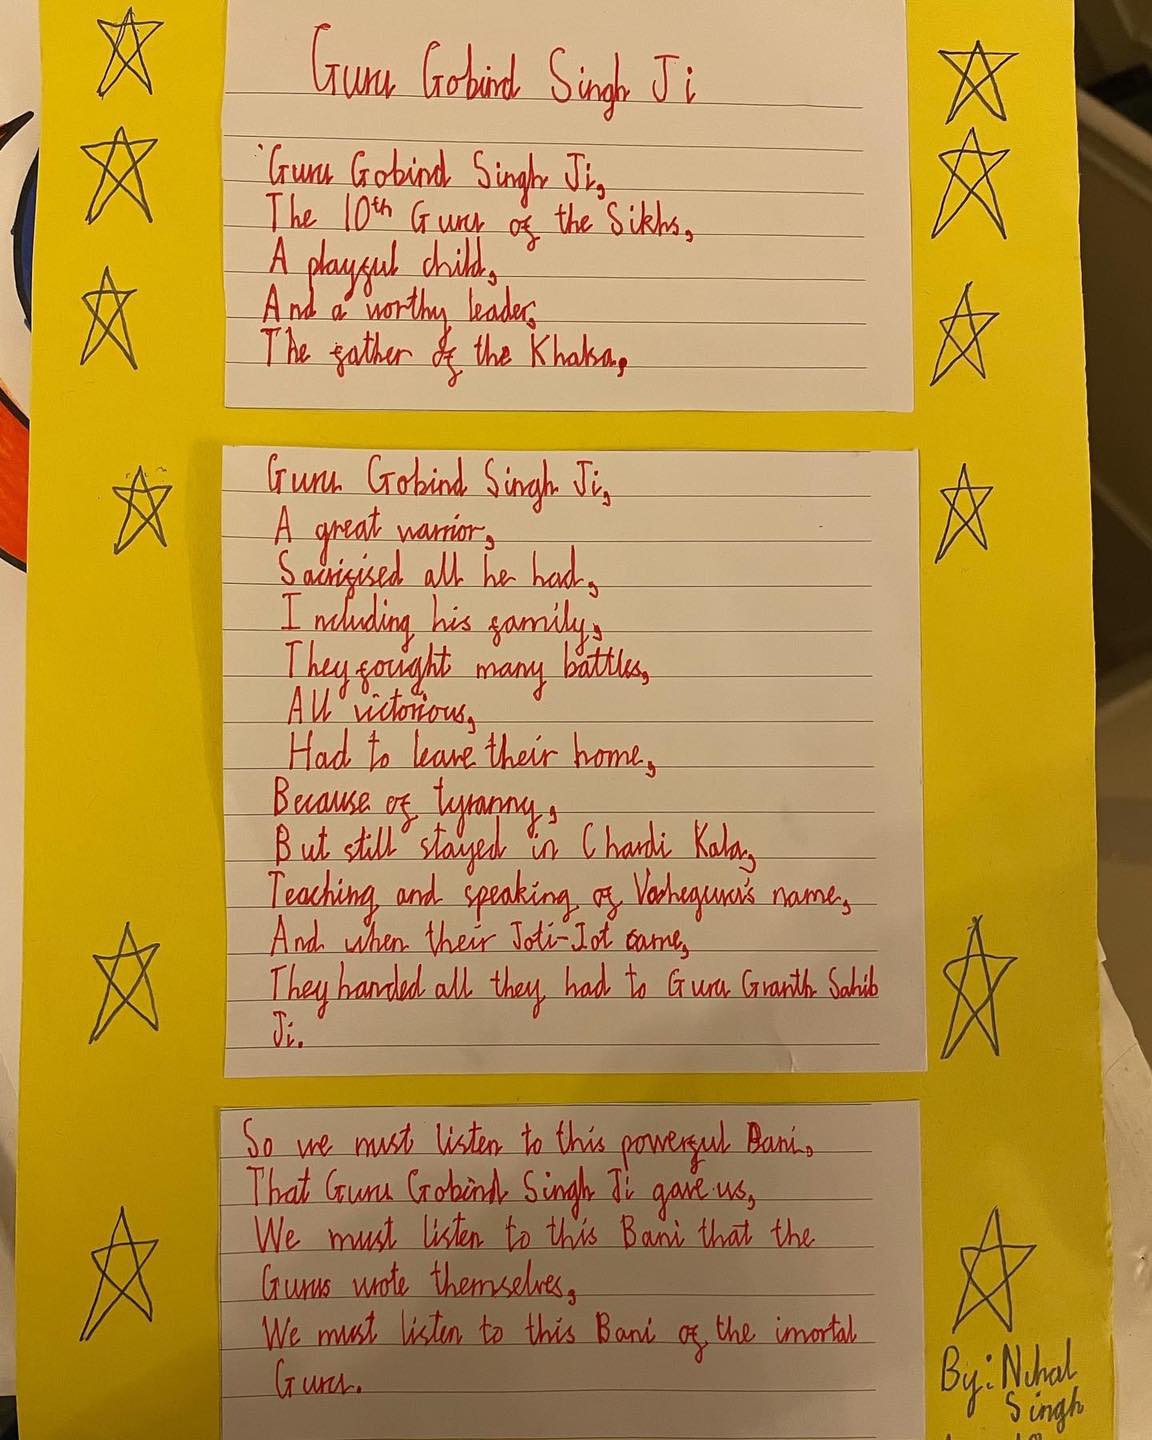 Guru Gobind Singh Ji
Guru Gobind Singh Ji,
The 10th Guru of the Sikhs,
A playful child,
And a worthy leader,
The father of the Khalsa,
Guru Gobind Singh Ji,
A great warrior,
Sacrifised all he had,
Including his family,
They fought many battles,
All victorious,
Had to leave their home,
Because of tyranny,
But still stayed in Chardi Kala,
Teaching and speaking of Vaheguru's name,
And when their Joti-Jot came,
They handed all they had to Guru Granth Sahib
Ji.
So we must listen to this powerful Bani,
That Guru Gobind Singh Ji gave us,
We must listen to this Bani that the
Gurus wrote themselves,
We must listen to this Bani of the imortal
Guru.
By: Nihal
Singh